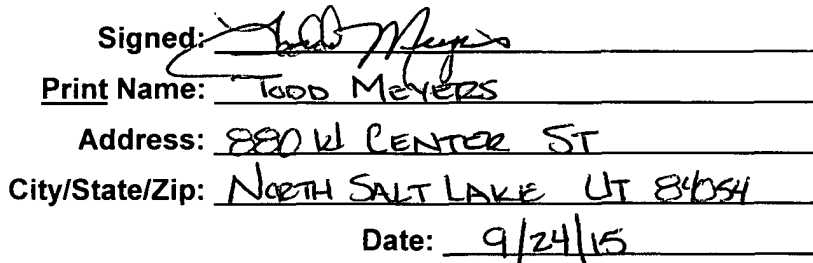 Signed: Todd Meyers
Print Name: TODD MEYERS
Address: 880 W CENTER ST
City/State/Zip: NORTH SALT LAKE UT 84054
Date: 9/24/15